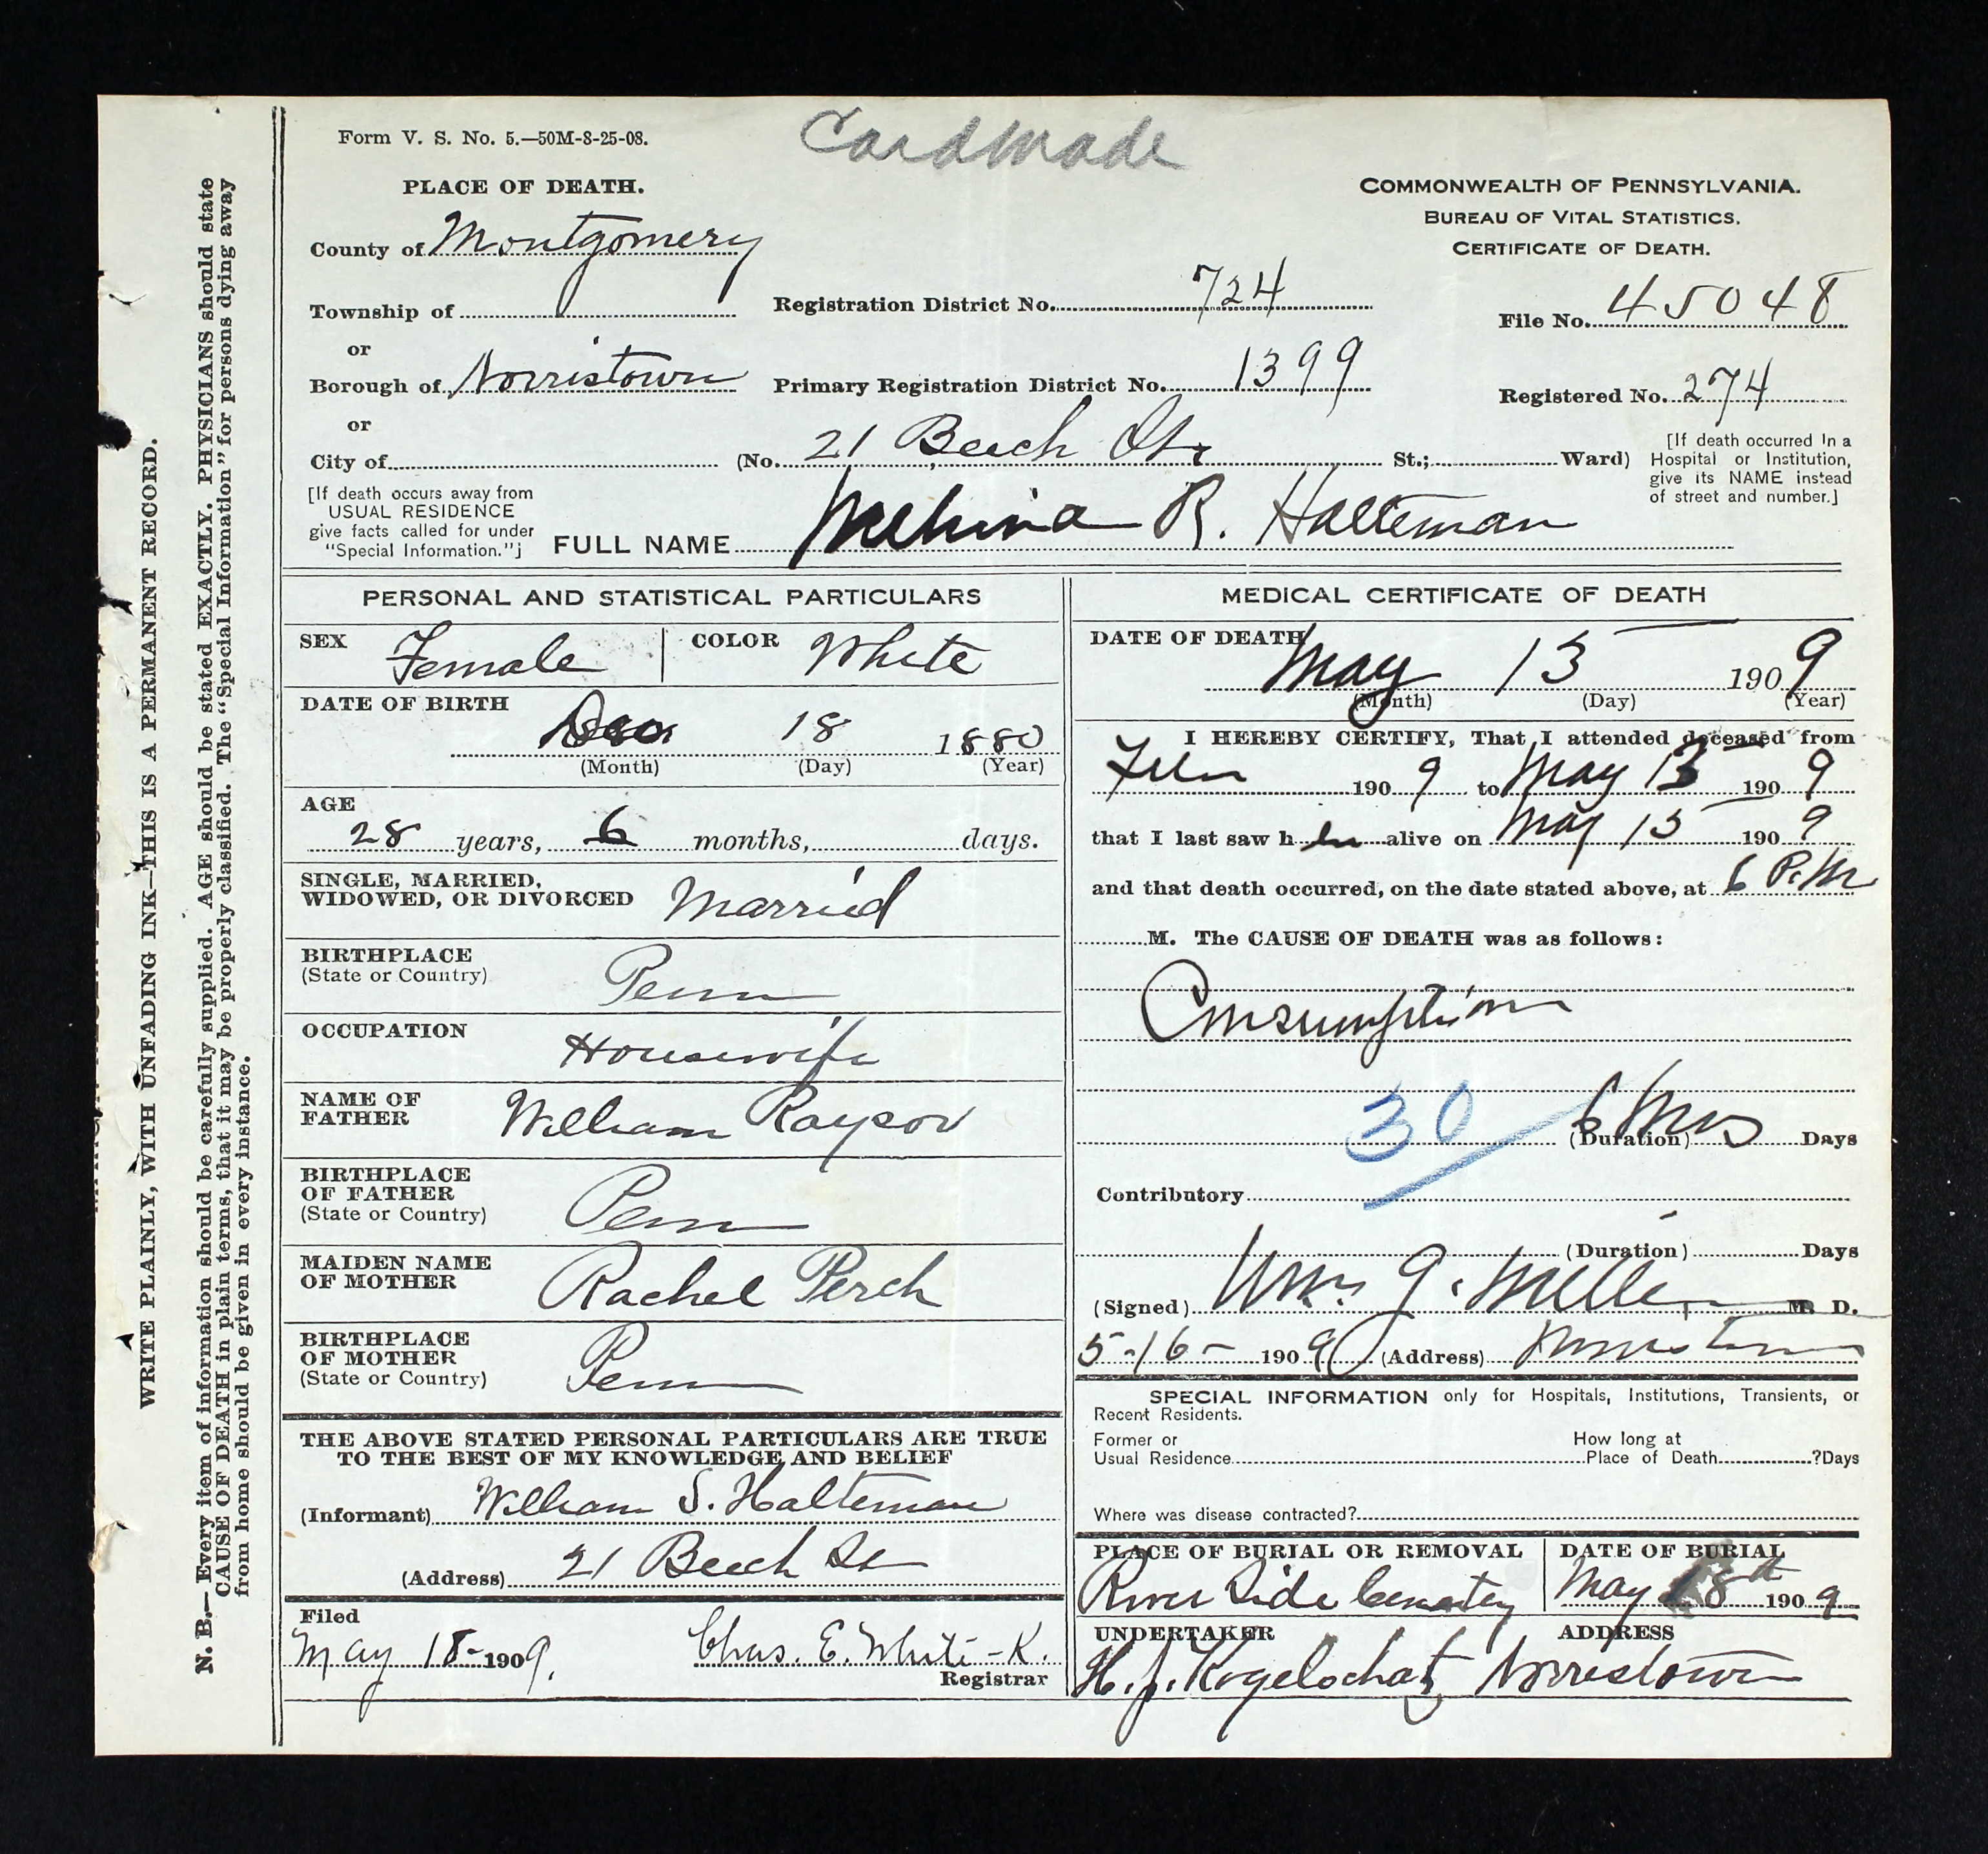 Cardmade
Form V. S. No. 5.—50M-8-25-08.
PLACE OF DEATH.
County of Montgomery
Township of
or
Borough of Norristown
or
City of
COMMONWEALTH OF PENNSYLVANIA.
BUREAU OF VITAL STATISTICS.
CERTIFICATE OF DEATH.
Registration District No. 724
File No. 45048
Primary Registration District No. 1399
Registered No. 274
(No. 21 Beech St. St.; Ward)
[If death occurred in a
Hospital or Institution,
give its NAME instead
of street and number.]
[If death occurs away from
USUAL RESIDENCE
give facts called for under
"Special Information."]
FULL NAME R. Halteman
PERSONAL AND STATISTICAL PARTICULARS
SEX Female COLOR White
DATE OF BIRTH
Dec 18 1880
(Month) (Day) (Year)
AGE
28 years, 6 months, days.
SINGLE, MARRIED,
WIDOWED, OR DIVORCED Married
BIRTHPLACE
(State or Country) Penn
OCCUPATION
Housewife
NAME OF
FATHER William Raysor
BIRTHPLACE
OF FATHER
(State or Country) Penn
MAIDEN NAME
OF MOTHER Rachel Perch
BIRTHPLACE
OF MOTHER
(State or Country) Penn
THE ABOVE STATED PERSONAL PARTICULARS ARE TRUE
TO THE BEST OF MY KNOWLEDGE AND BELIEF
(Informant) William S. Halteman
(Address) 21 Beech St
Filed
May 18- 1909. Chas. E. White - K.
Registrar
MEDICAL CERTIFICATE OF DEATH
DATE OF DEATH
May 13 1909
(Month) (Day) (Year)
I HEREBY CERTIFY, That I attended deceased from
Feb 1909 to May 13 1909
that I last saw her alive on May 13 1909
and that death occurred, on the date stated above, at 6 P.M
M. The CAUSE OF DEATH was as follows:
Consumption
30
6 Mos
(Duration) Days
Contributory
(Duration) Days
(Signed) Wm. G. Miller M. D.
5-16- 1909 (Address) Norristown
SPECIAL INFORMATION only for Hospitals, Institutions, Transients, or
Recent Residents.
Former or
Usual Residence
How long at
Place of Death ?Days
Where was disease contracted?
PLACE OF BURIAL OR REMOVAL
River Side Cemetery
DATE OF BURIAL
May 18 1909
UNDERTAKER ADDRESS
Norristown
WRITE PLAINLY, WITH UNFADING INK—THIS IS A PERMANENT RECORD.
N. B.—Every item of information should be carefully supplied. AGE should be stated EXACTLY. PHYSICIANS should state
CAUSE OF DEATH in plain terms, that it may be properly classified. The "Special Information" for persons dying away
from home should be given in every instance.